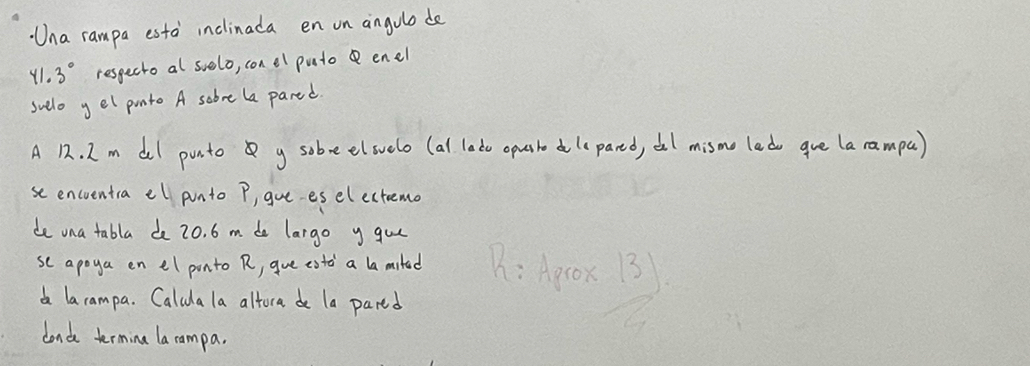 ·Una rampa está inclinada en un ángulo de
41.3° respecto al suelo, con el punto Q en el
suelo y el punto A sobre la pared.
A 12.2 m del punto Q y sobre el suelo (al lado opuesto de la pared, del mismo lado que la rampa)
se encuentra el punto P, que es el extremo
de una tabla de 20.6 m de largo y que
se apoya en el punto R, que está a la mitad
de la rampa. Calcula la altura de la pared
donde termina la rampa.
R: Aprox 13